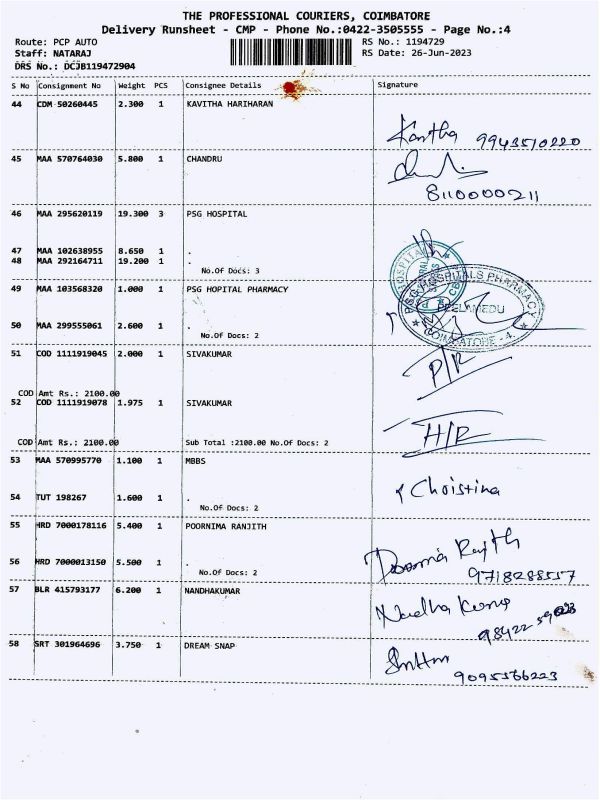 THE PROFESSIONAL COURIERS, COIMBATORE
Delivery Runsheet - CMP - Phone No.:0422-3505555 - Page No.:4
Route: PCP AUTO RS No.: 1194729
Staff: NATARAJ RS Date: 26-Jun-2023
DRS No.: DCJB119472904
S No Consignment No Weight PCS Consignee Details Signature
44 CDM 50260445 2.300 1 KAVITHA HARIHARAN
Kavitha 9943510220
45 MAA 570764030 5.800 1 CHANDRU
8110000211
46 MAA 295620119 19.300 3 PSG HOSPITAL
47 MAA 102638955 8.650 1 .
48 MAA 292164711 19.200 1 .
No.Of Docs: 3
49 MAA 103568320 1.000 1 PSG HOPITAL PHARMACY
PSG HOSPITALS PHARMACY
PEELAMEDU
COIMBATORE - 4.
50 MAA 299555061 2.600 1 .
No.Of Docs: 2
51 COD 1111919045 2.000 1 SIVAKUMAR
P/R
COD Amt Rs.: 2100.00
52 COD 1111919078 1.975 1 SIVAKUMAR
H/R
COD Amt Rs.: 2100.00 Sub Total :2100.00 No.Of Docs: 2
53 MAA 570995770 1.100 1 MBBS
Christina
54 TUT 198267 1.600 1 .
No.Of Docs: 2
55 HRD 7000178116 5.400 1 POORNIMA RANJITH
56 HRD 7000013150 5.500 1 .
No.Of Docs: 2
9718288557
57 BLR 415793177 6.200 1 NANDHAKUMAR
58 SRT 301964696 3.750 1 DREAM SNAP
9095366223